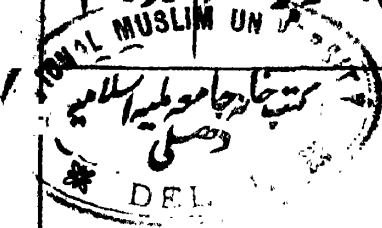 MUSLIM UN
کتب خانہ جامعہ ملیہ اسلامیہ
دھلی
DEL